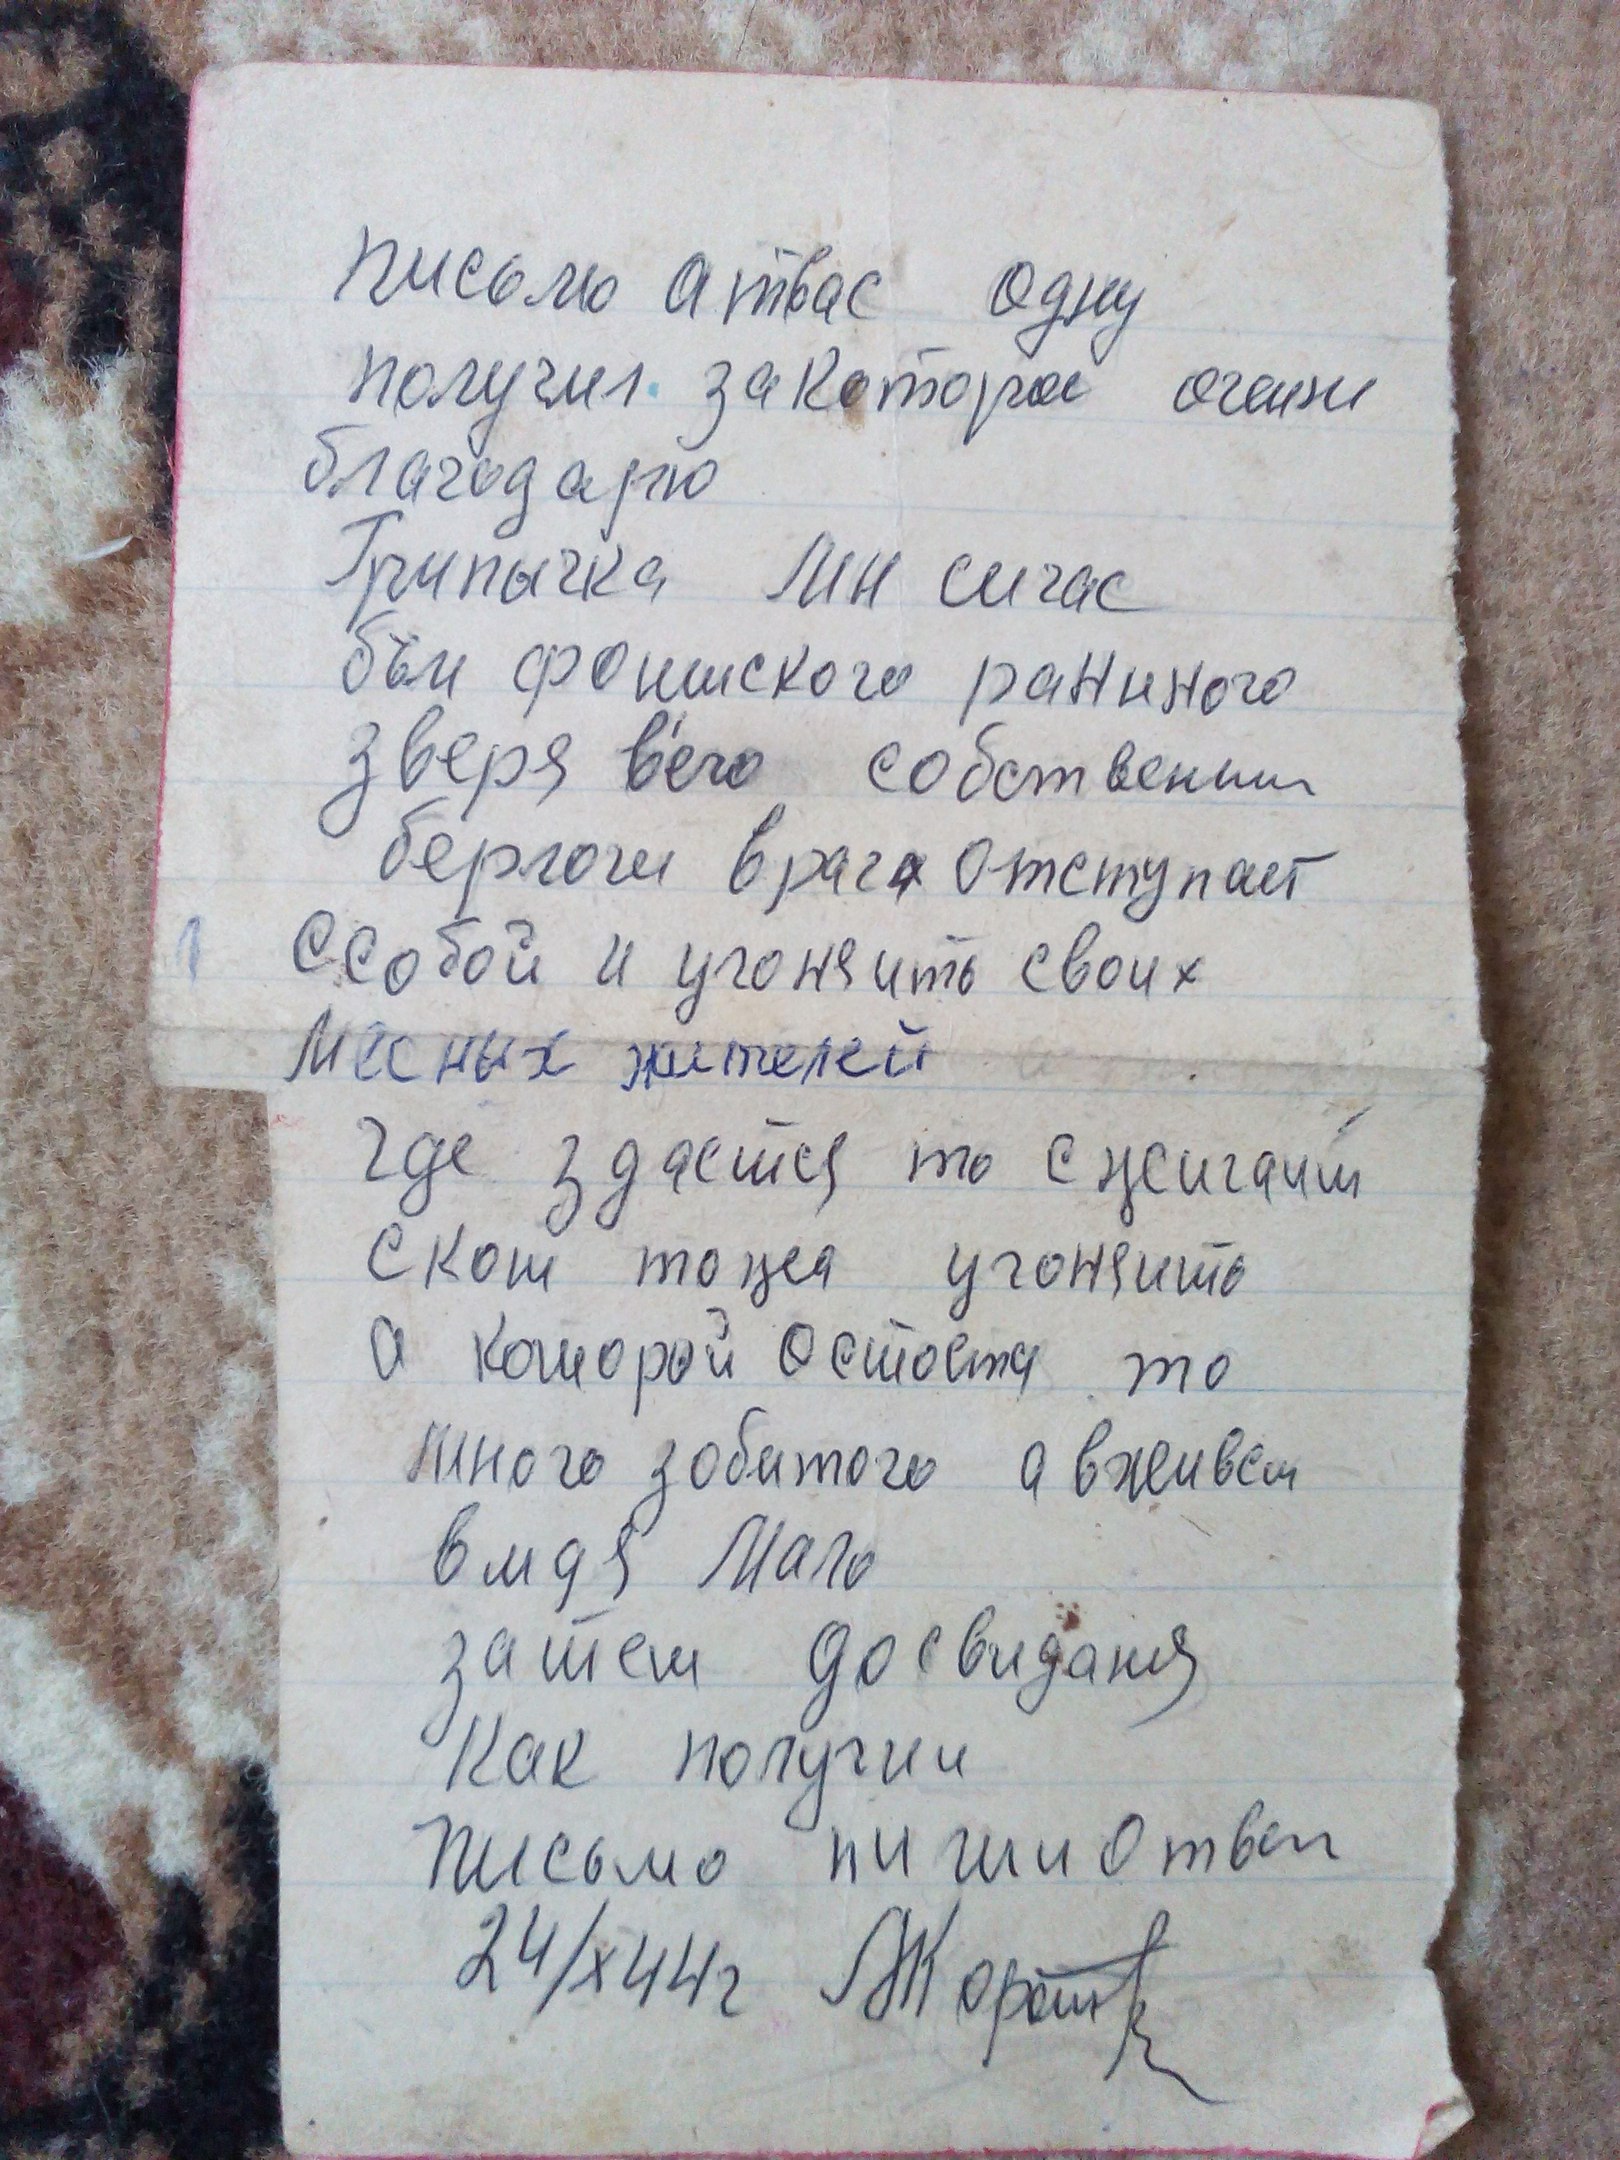 писмо атвас одну
получил закоторое очень
благодарю
Грипычка Мы сичас
бьём фошиского раниного
зверя в'его собственни
берлоги враг отступает
ссобой и угоняить своих
Месных жителей
где здается то сжигаит
скот тожеа угоняить
а которой остоется то
много зобитого а вживем
вмдя Мало
затем досвиданя
Как получии
Письмо пиши ответ
24/х44г